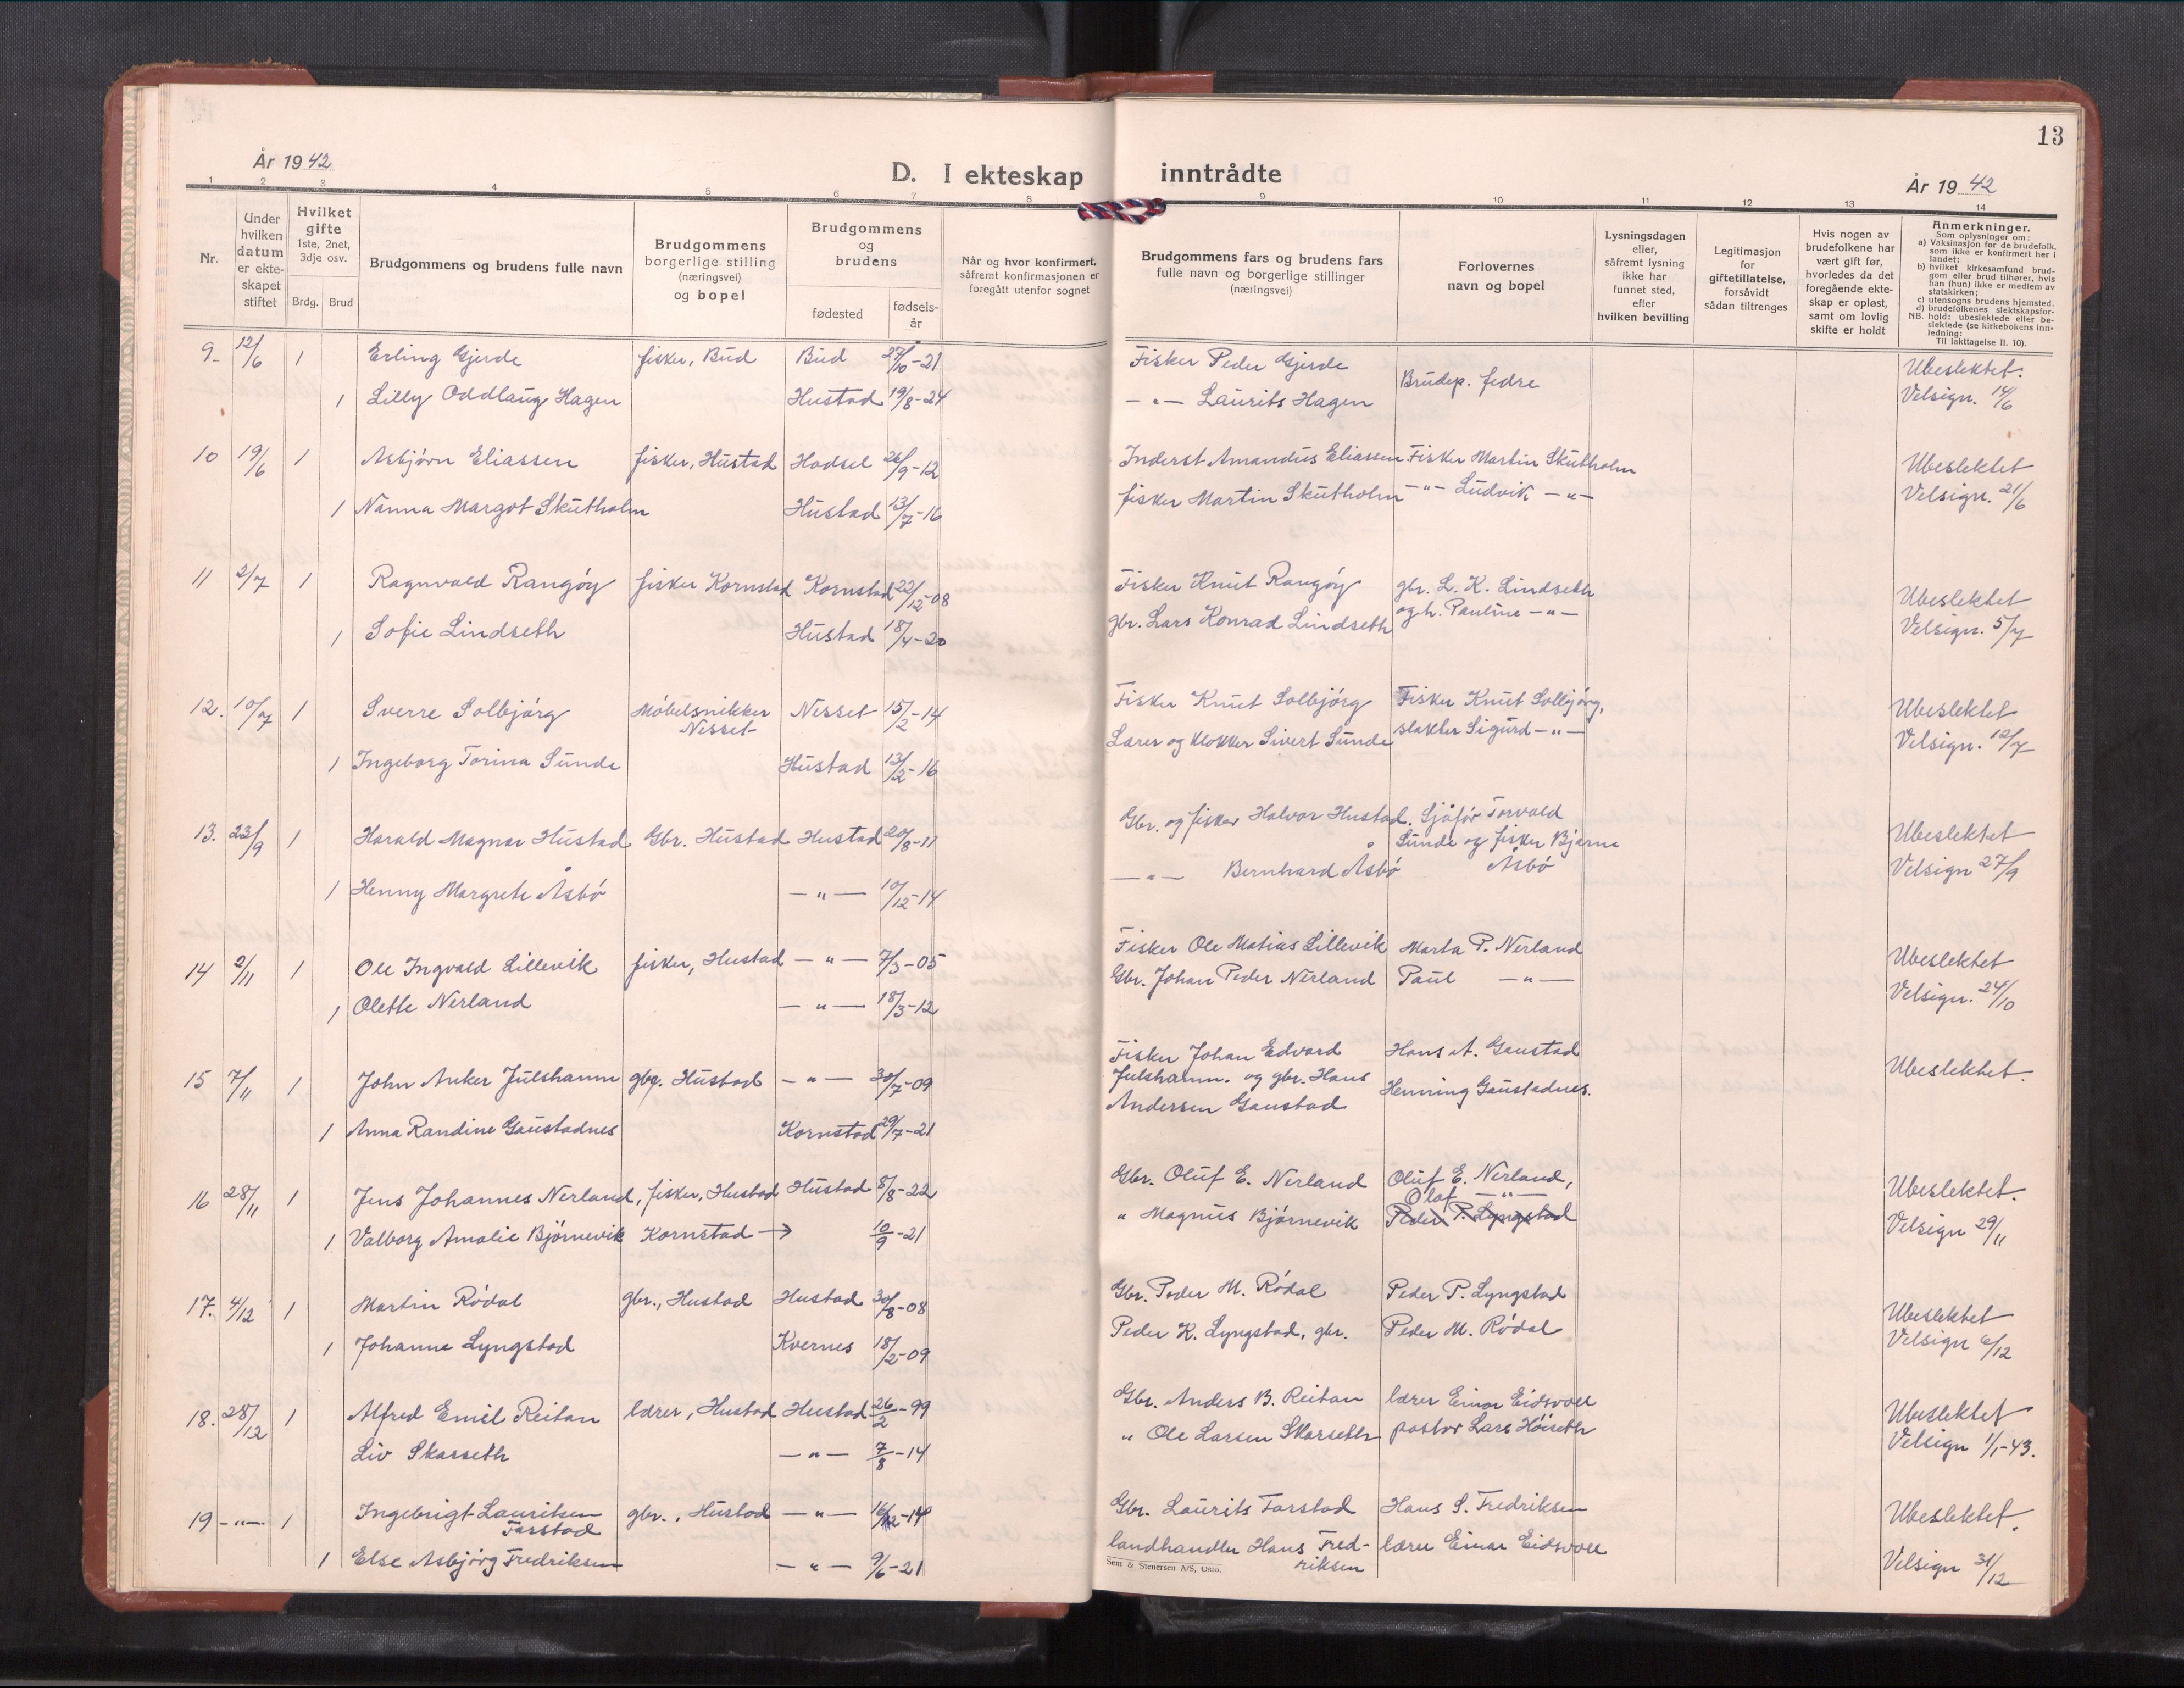 13
År 1942
D. I ekteskap inntrådte
År 1942
1 2 3 4 5 6 7 8 9 10 11 12 13 14
Nr.
Under hvilken datum er ekteskapet stiftet
Hvilket gifte
1ste, 2net, 3dje osv.
Brdg. Brud
Brudgommens og brudens fulle navn
Brudgommens borgerlige stilling (næringsvei) og bopel
Brudgommens og brudens
fødested
fødselsår
Når og hvor konfirmert, såfremt konfirmasjonen er foregått utenfor sognet
Brudgommens fars og brudens fars fulle navn og borgerlige stillinger (næringsvei)
Forlovernes navn og bopel
Lysningsdagen eller, såfremt lysning ikke har funnet sted, efter hvilken bevilling
Legitimasjon for giftetillatelse, forsåvidt sådan tiltrenges
Hvis nogen av brudefolkene har vært gift før, hvorledes da det foregående ekteskap er opløst, samt om lovlig skifte er holdt
Anmerkninger.
Som oplysninger om:
a) Vaksinasjon for de brudefolk, som ikke er konfirmert her i landet;
b) hvilket kirkesamfund brudgom eller brud tilhører, hvis han (hun) ikke er medlem av statskirken;
c) utensogns brudens hjemsted.
d) brudefolkenes slektskapsforhold: ubeslektede eller beslektede (se kirkebokens innledning:
NB.
Til iakttagelse II. 10).
9. 12/6 1 Erling Gjerde fisker, Bud Bud 27/10-21 Fisker Peder Gjerde Brudep. fedre Ubeslektet.
1 Lilly Oddlaug Hagen Hustad 19/8-24 -"- Laurits Hagen Velsign. 14/6
10 19/6 1 Asbjørn Eliassen fisker, Hustad Hadsel 26/9-12 Inderst Amandus Eliassen Fisker Martin Skutholm Ubeslektet
1 Nanna Margot Skutholm Hustad 13/7-16 fisker Martin Skutholm -"- Ludvik -"- Velsign. 21/6
11 2/7 1 Ragnvald Rangøy fisker Kornstad Kornstad 22/12-08 Fisker Knut Rangøy gbr. L. K. Lindseth Ubeslektet
1 Sofie Lindseth Hustad 18/4-20 gbr. Lars Konrad Lindseth og h. Pauline -"- Velsign. 5/7
12. 10/7 1 Sverre Solbjørg Møbelsnikker Nesset Nesset 15/2-14 Fisker Knut Solbjørg Fisker Knut Solbjørg, Ubeslektet
1 Ingeborg Torina Sunde Hustad 13/2-16 Lærer og klokker Sivert Sunde slakter Sigurd -"- Velsign. 12/7
13. 23/9 1 Harald Magnar Hustad Gbr. Hustad Hustad 20/8-11 Gbr. og fisker Halvor Hustad. Sjåfør Torvald Sunde og fisker Bjarne Åsbø Ubeslektet
1 Henny Margrete Åsbø -"- 10/12-14 -"- Bernhard Åsbø Velsign 27/9
14 2/11 1 Ole Ingvald Lillevik fisker, Hustad -"- 7/3-05 Fisker Ole Matias Lillevik Marta P. Nerland Ubeslektet
1 Olette Nerland -"- 18/3-12 Gbr. Johan Peder Nerland Paul -"- Velsign. 24/10
15 7/11 1 John Anker Julshamn gbr. Hustad -"- 30/7-09 Fisker Johan Edvard Julshamn. og gbr. Hans Andersen Gaustad Hans A. Gaustad Ubeslektet.
1 Anna Randine Gaustadnes Kornstad 29/7-21 Henning Gaustadnes.
16 28/11 1 Jens Johannes Nerland, fisker, Hustad Hustad 8/8-22 Gbr. Oluf E. Nerland Oluf E. Nerland, Ubeslektet.
Olaf -"-
1 Valborg Amalie Bjørnevik Kornstad → 10/9-21 " Magnus Bjørnevik Peder P. Lyngstad Velsign 29/11
17. 4/12 1 Martin Rødal gbr., Hustad Hustad 30/8-08 Gbr. Peder M. Rødal Peder P. Lyngstad Ubeslektet
1 Johanne Lyngstad Kvernes 18/2-09 Peder K. Lyngstad, gbr. Peder M. Rødal Velsign 6/12
18. 28/12 1 Alfred Emil Reitan lærer, Hustad Hustad 26/2-99 Gbr. Anders B. Reitan lærer Einar Eidsvoll Ubeslektet
Liv Skarseth -"- 7/8-14 " Ole Larsen Skarseth pastor Lars Höiseth Velsign 1/1-43.
19 -"- 1 Ingebrigt Lauritsen Farstad gbr., Hustad -"- 16/12-14 Gbr. Laurits Farstad Hans S. Fredriksen Ubeslektet.
1 Else Asbjørg Fredriksen -"- 9/6-21 landhandler Hans Fredriksen lærer Einar Eidsvoll Velsign 31/12
Sem & Stenersen A/S, Oslo.